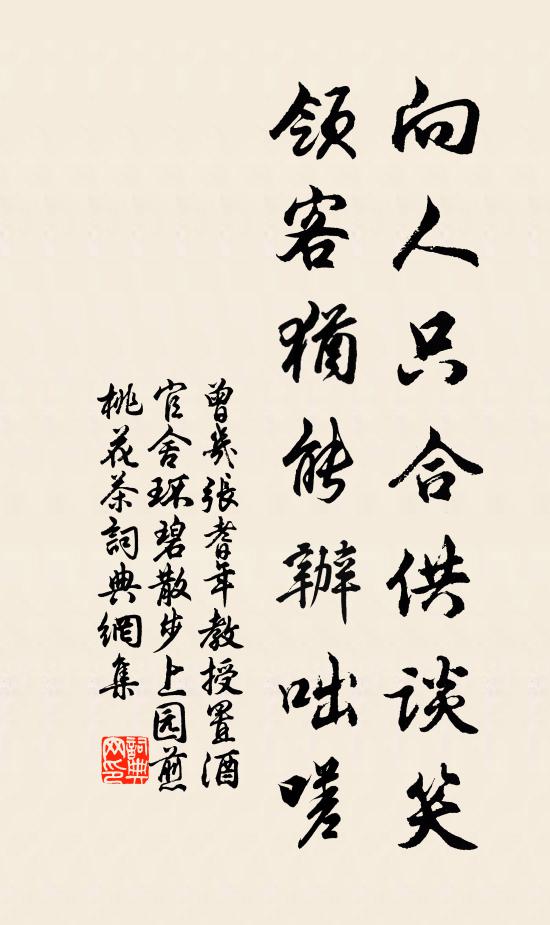 向人只合供談笑
領客猶能辦咄嗟
曾幾張耆年教授置酒
官舍环碧散步上园煎
桃花茶詞典網集
詞典网印